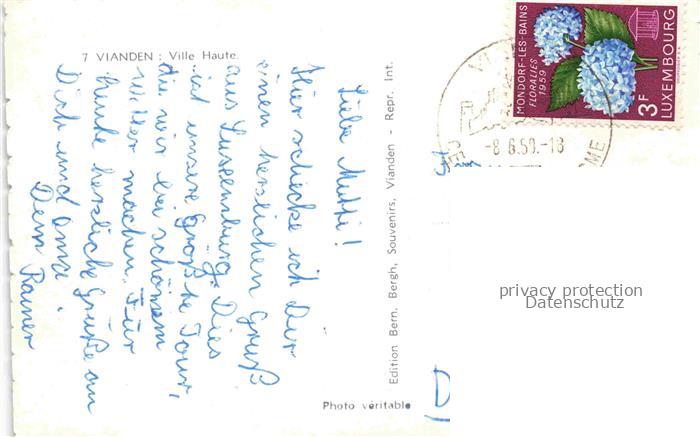 7 VIANDEN : Ville Haute.
Liebe Mutti!
Hier schicke ich Dir
einen herzlichen Gruß
aus Luxemburg. Dies
ist unsere Größte Tour,
die wir bei schönem
Wetter machen. Für
heute herzliche Grüße an
Dich und Oma
Dein Rainer
Edition Bern. Bergh, Souvenirs, Vianden - Repr. Int.
Photo véritable
MONDORF-LES-BAINS
FLORALIES
1959
3F
LUXEMBOURG
-8.6.59.-18
privacy protection
Datenschutz